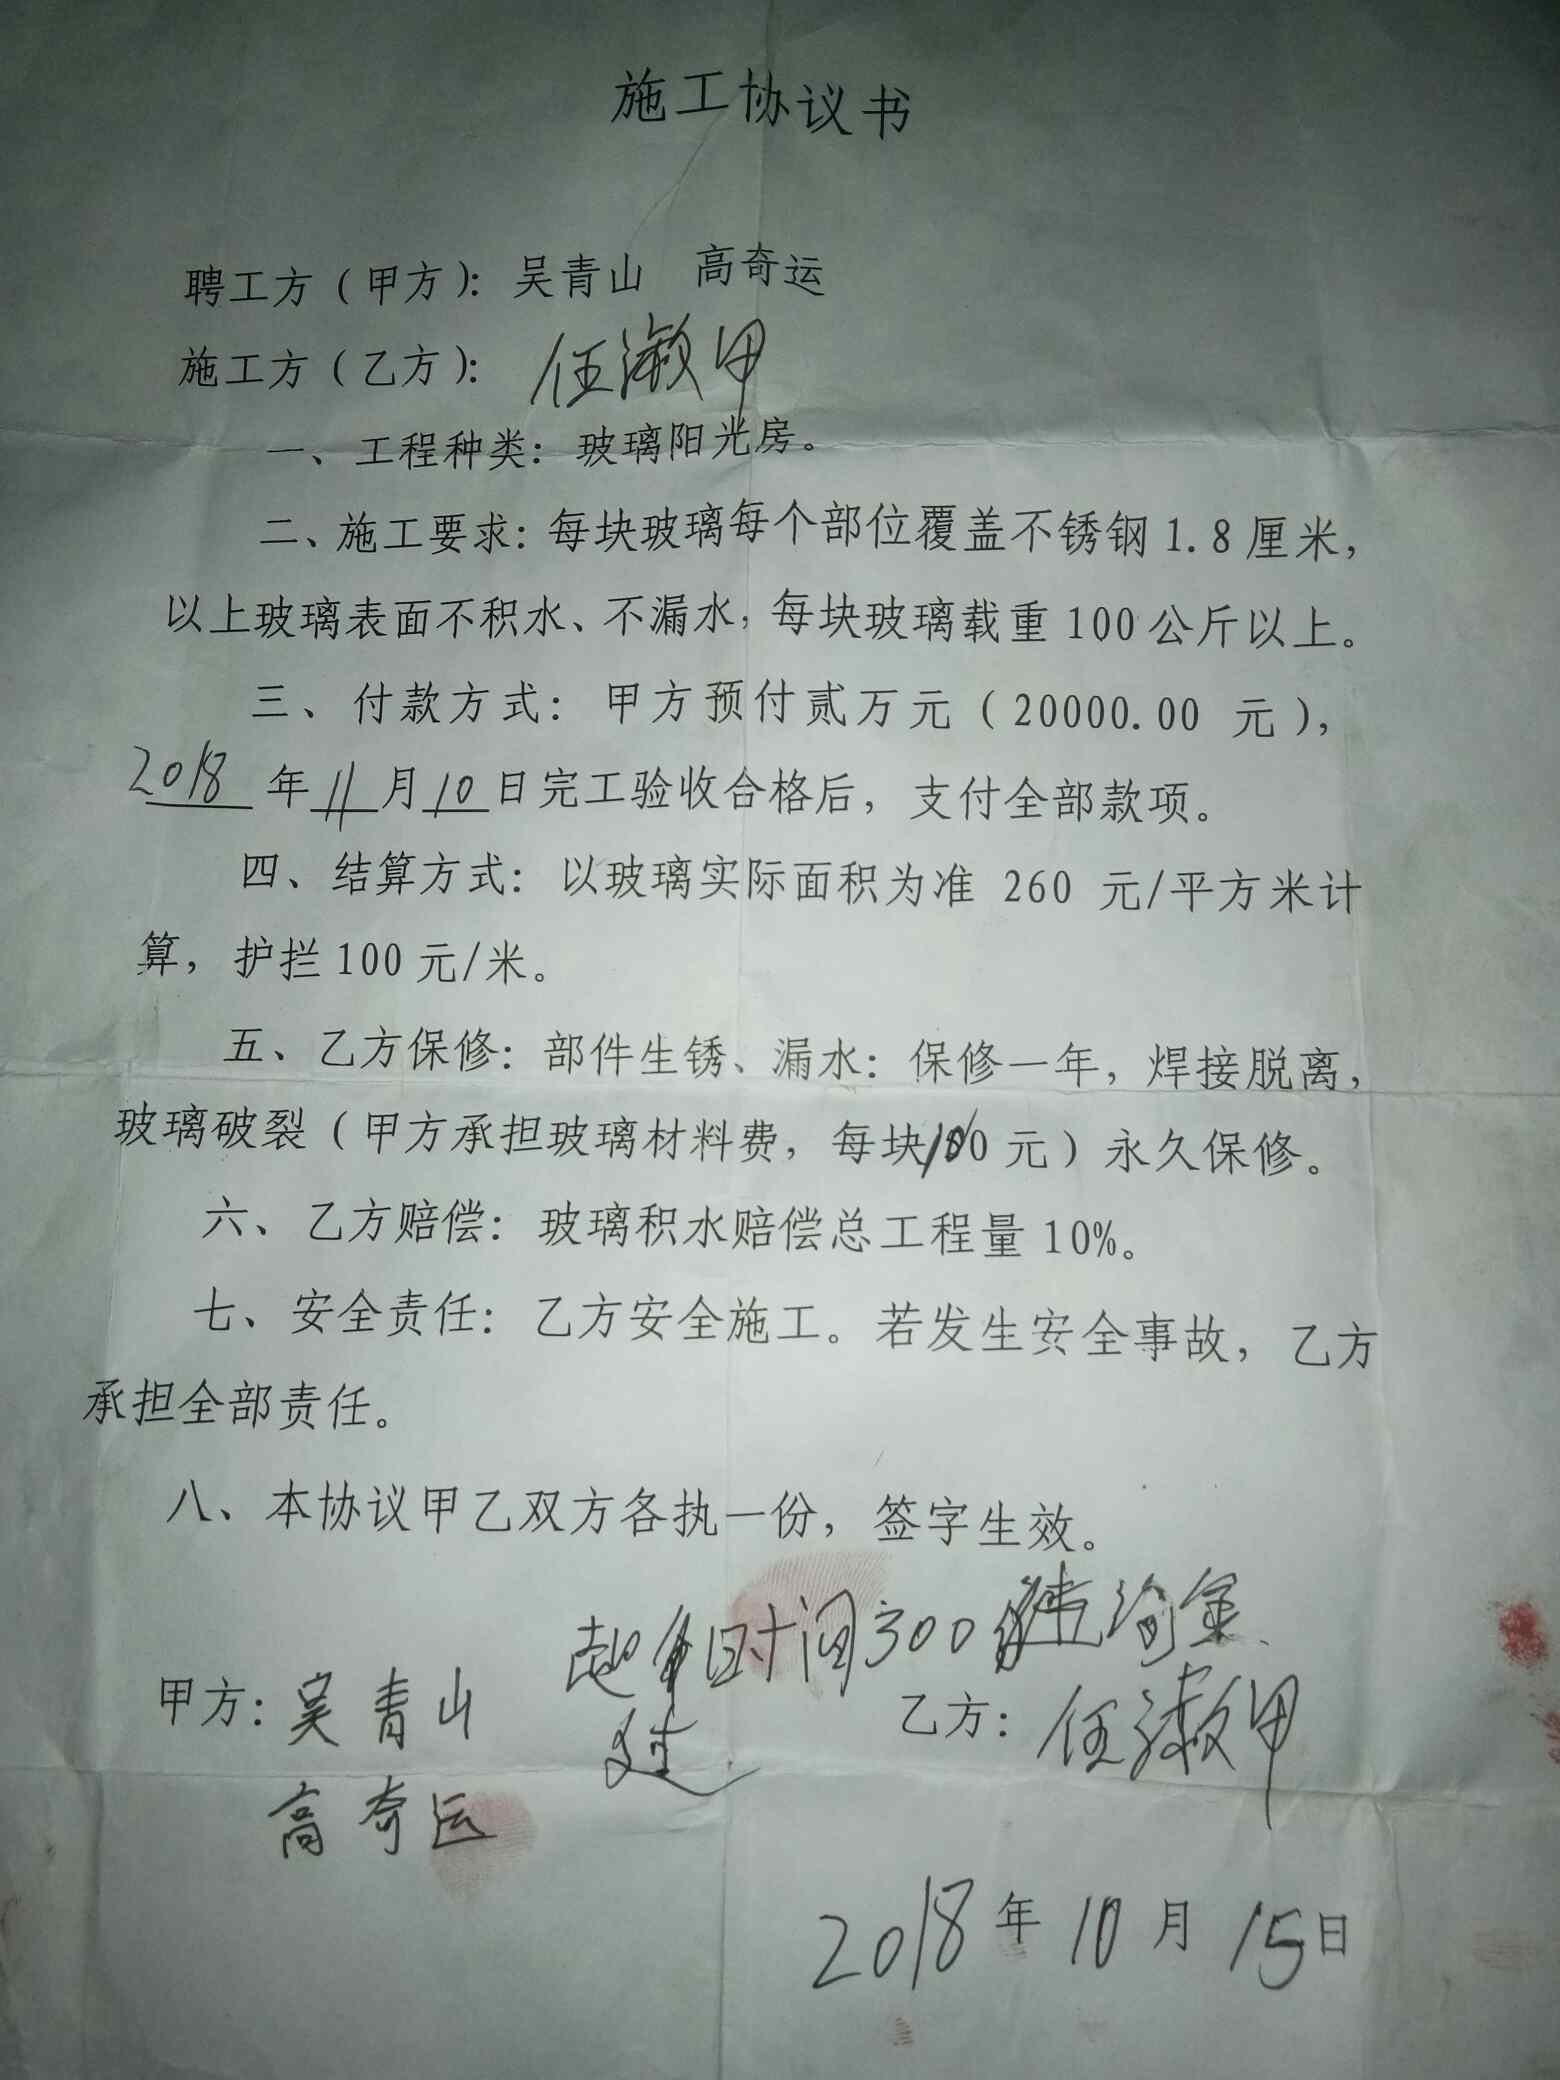 施工协议书
聘工方（甲方）：吴青山 高奇运
施工方（乙方）：任淑甲
一、工程种类：玻璃阳光房。
二、施工要求：每块玻璃每个部位覆盖不锈钢1.8厘米，
以上玻璃表面不积水、不漏水，每块玻璃载重100公斤以上。
三、付款方式：甲方预付贰万元（20000.00 元），
2018年11月10日完工验收合格后，支付全部款项。
四、结算方式：以玻璃实际面积为准 260 元/平方米计
算，护拦100元/米。
五、乙方保修：部件生锈、漏水：保修一年，焊接脱离，
玻璃破裂（甲方承担玻璃材料费，每块100元）永久保修。
六、乙方赔偿：玻璃积水赔偿总工程量10%。
七、安全责任：乙方安全施工。若发生安全事故，乙方
承担全部责任。
八、本协议甲乙双方各执一份，签字生效。
时间300 金
甲方：吴青山 乙方：任淑甲
高奇运
2018年10月15日